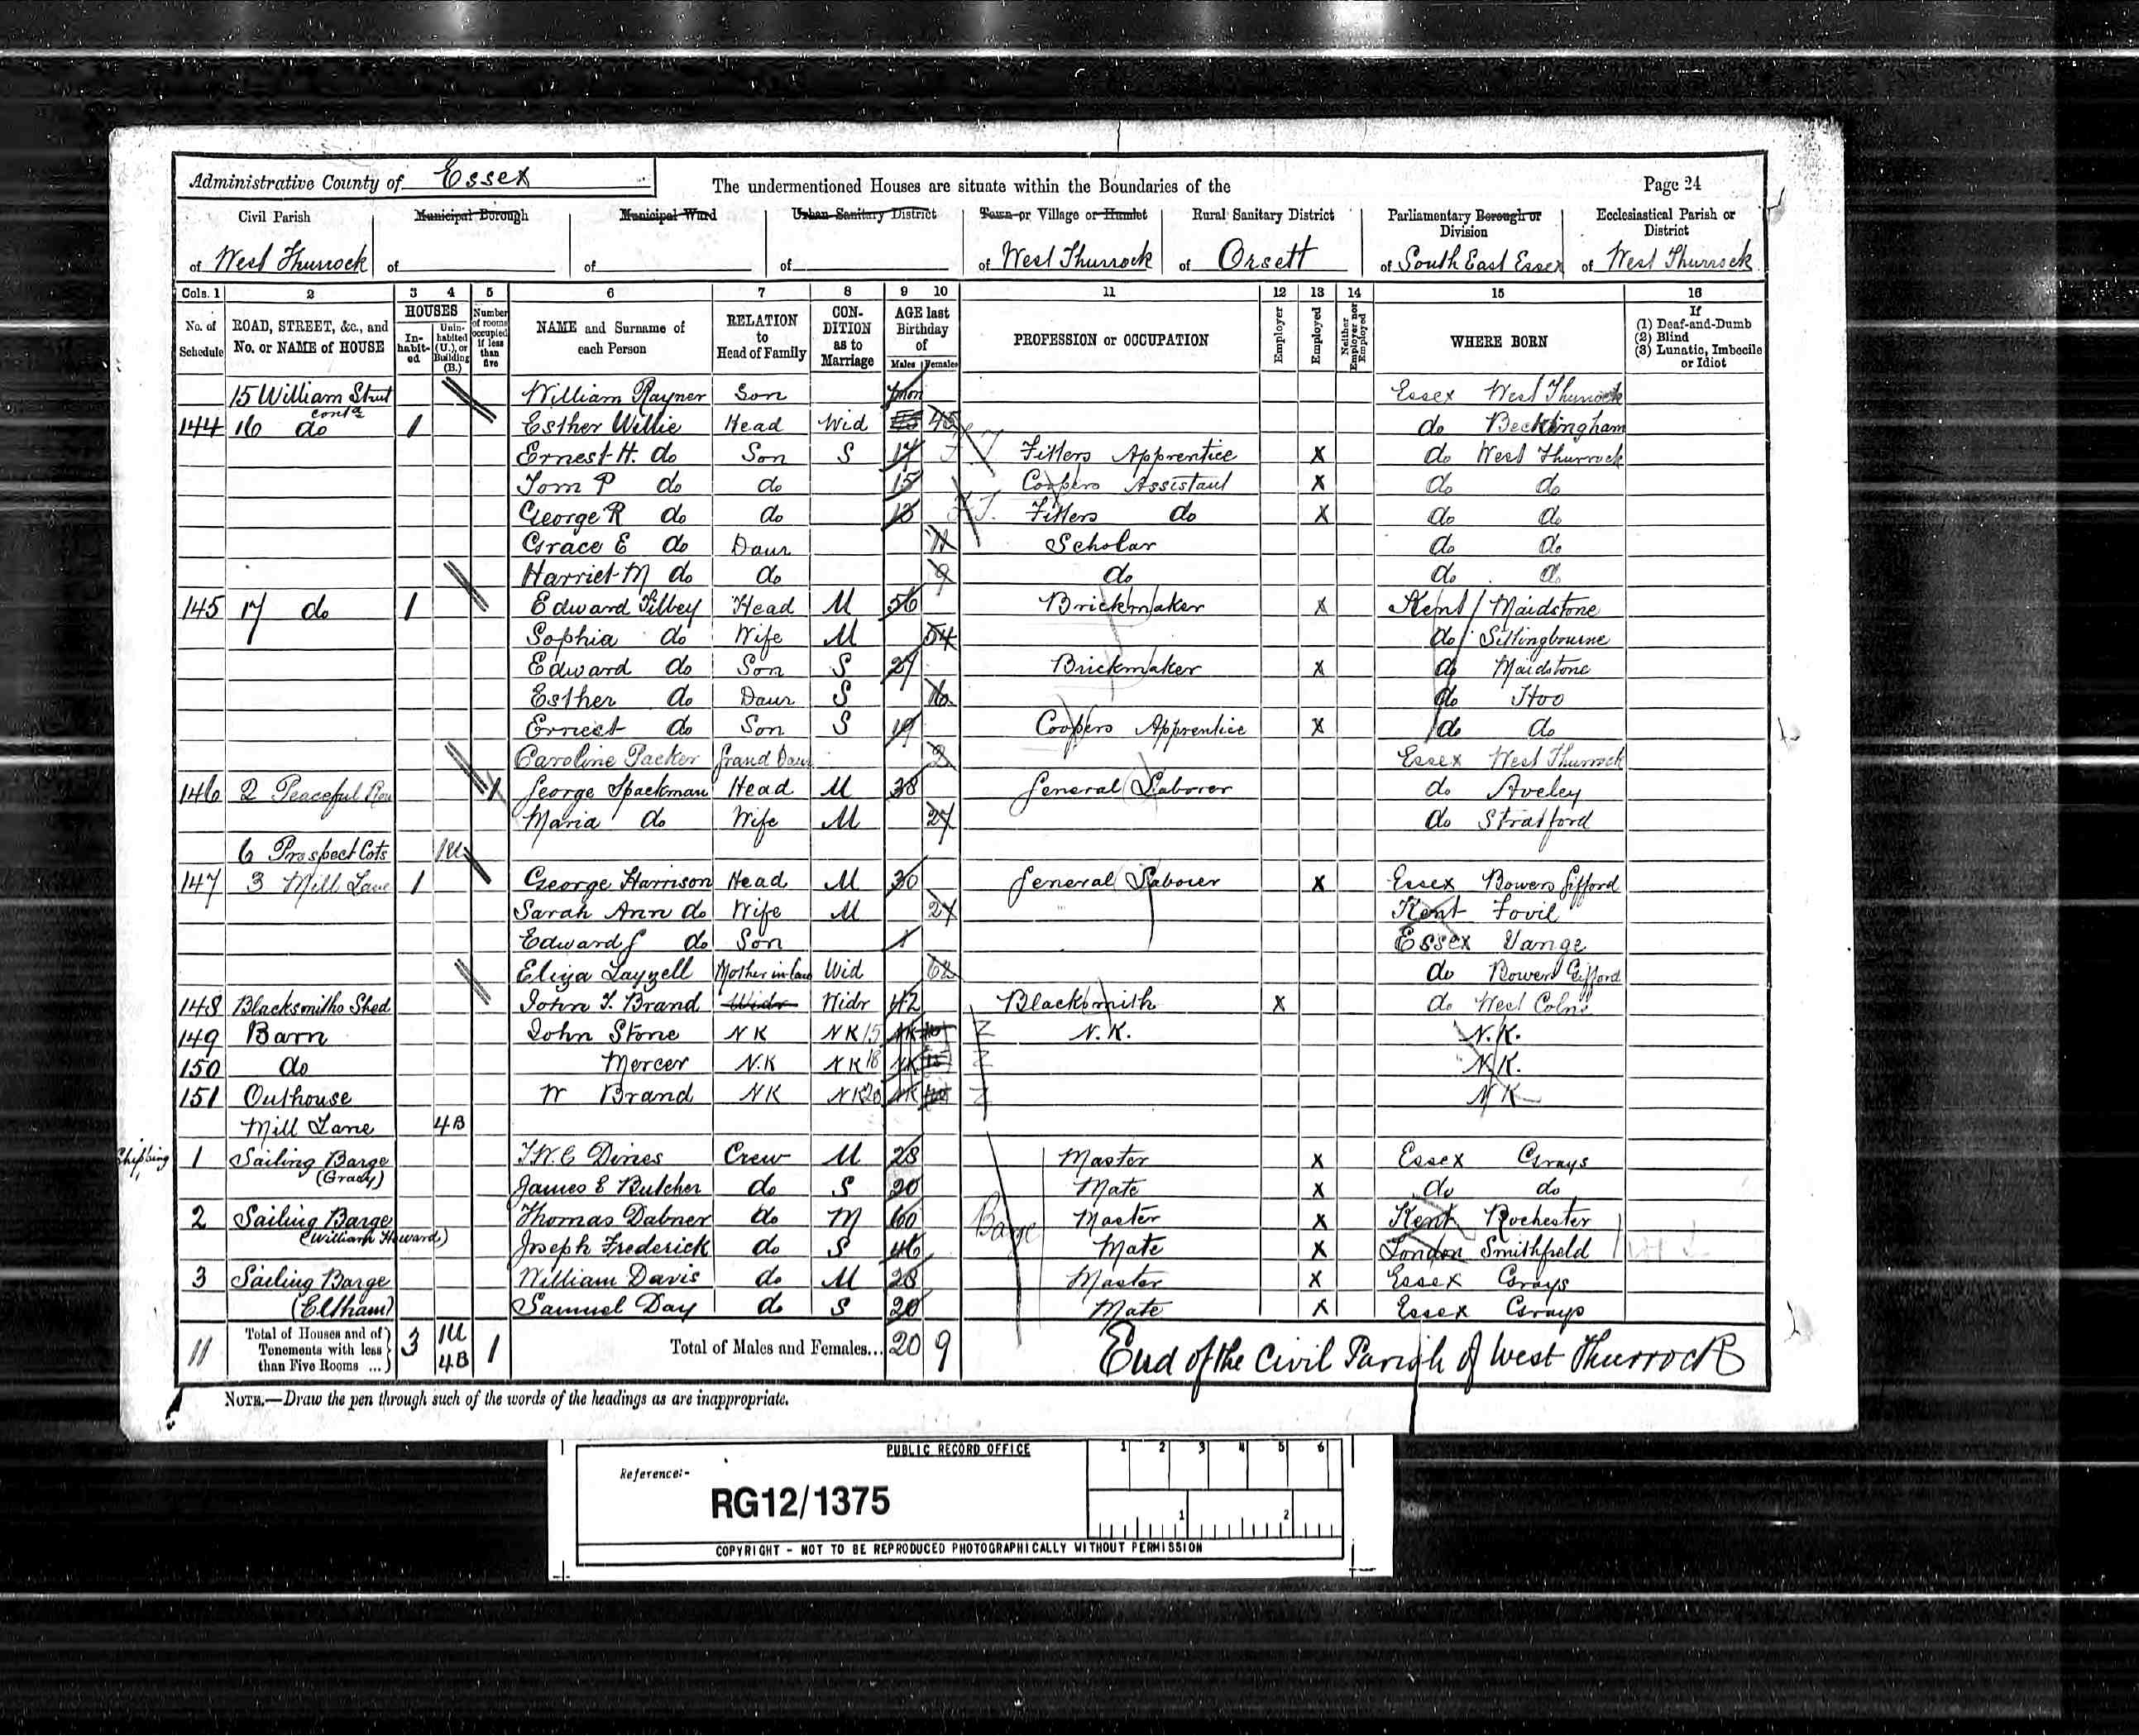 Administrative County of Essex
The undermentioned Houses are situate within the Boundaries of the
Page 24
Civil Parish
Municipal Borough
Municipal Ward
Urban Sanitary District
Town or Village or Hamlet
Rural Sanitary District
Parliamentary Borough or Division
Ecclesiastical Parish or District
of West Thurrock
of
of
of
of West Thurrock
of Orsett
of South East Essex
of West Thurrock
Cols. 1 2 3 4 5 6 7 8 9 10 11 12 13 14 15 16
No. of Schedule
ROAD, STREET, &c., and No. or NAME of HOUSE
HOUSES
In-habit-ed
Unin-habited (U.), or Building (B.)
Number of rooms occupied if less than five
NAME and Surname of each Person
RELATION to Head of Family
CON-DITION as to Marriage
AGE last Birthday of
Males Females
PROFESSION or OCCUPATION
Employer
Employed
Neither Employer nor Employed
WHERE BORN
If
(1) Deaf-and-Dumb
(2) Blind
(3) Lunatic, Imbecile or Idiot
15 William Street contd William Rayner Son mon Essex West Thurrock
144 16 do 1 Esther Willie Head Wid 45 do Beckingham
Ernest H. do Son S 17 Fitters Apprentice X do West Thurrock
Tom P do do 15 Coopers Assistant X do do
George R do do 13 Fitters do X do do
Grace E do Daur 11 Scholar do do
Harriet M do do 9 do do do
145 17 do 1 Edward Tilbey Head M 56 Brickmaker X Kent Maidstone
Sophia do Wife M 54 do Sittingbourne
Edward do Son S 27 Brickmaker X do Maidstone
Esther do Daur S 16 do Hoo
Ernest do Son S 19 Coopers Apprentice X do do
Caroline Packer Grand Daur 2 Essex West Thurrock
146 2 Peaceful Row 1 George Spackman Head M 38 General Laborer do Aveley
Maria do Wife M 27 do Stratford
6 Prospect Cots 1U
147 3 Mill Lane 1 George Harrison Head M 30 General Laborer X Essex Bowers Gifford
Sarah Ann do Wife M 27 Kent Fovil
Edward G do Son 1 Essex Vange
Eliza Layzell Mother in law Wid 62 do Bowers Gifford
148 Blacksmiths Shed John T. Brand Widr Widr 42 Blacksmith X do West Coln
149 Barn John Stone NK NK 15 NK N.K. N.K.
150 do Mercer N.K NK 18 NK N.K.
151 Outhouse W Brand NK NK 20 NK NK
Mill Lane 4B
Shipping 1 Sailing Barge T.W.C Dines Crew M 28 Master X Essex Grays
(Grady) James E Butcher do S 20 Mate X do do
2 Sailing Barge Thomas Dabner do M 60 Barge Master X Kent Rochester
(William Howard) Joseph Frederick do S 46 Mate X London Smithfield
3 Sailing Barge William Davis do M 28 Master X Essex Grays
(Eltham) Samuel Day do S 20 Mate X Essex Grays
11 Total of Houses and of Tenements with less than Five Rooms ... 3 1U 4B 1 Total of Males and Females... 20 9
End of the Civil Parish of West Thurrock
NOTE.—Draw the pen through such of the words of the headings as are inappropriate.
PUBLIC RECORD OFFICE
1 2 3 4 5 6
Reference:-
RG12/1375
1 2
COPYRIGHT - NOT TO BE REPRODUCED PHOTOGRAPHICALLY WITHOUT PERMISSION